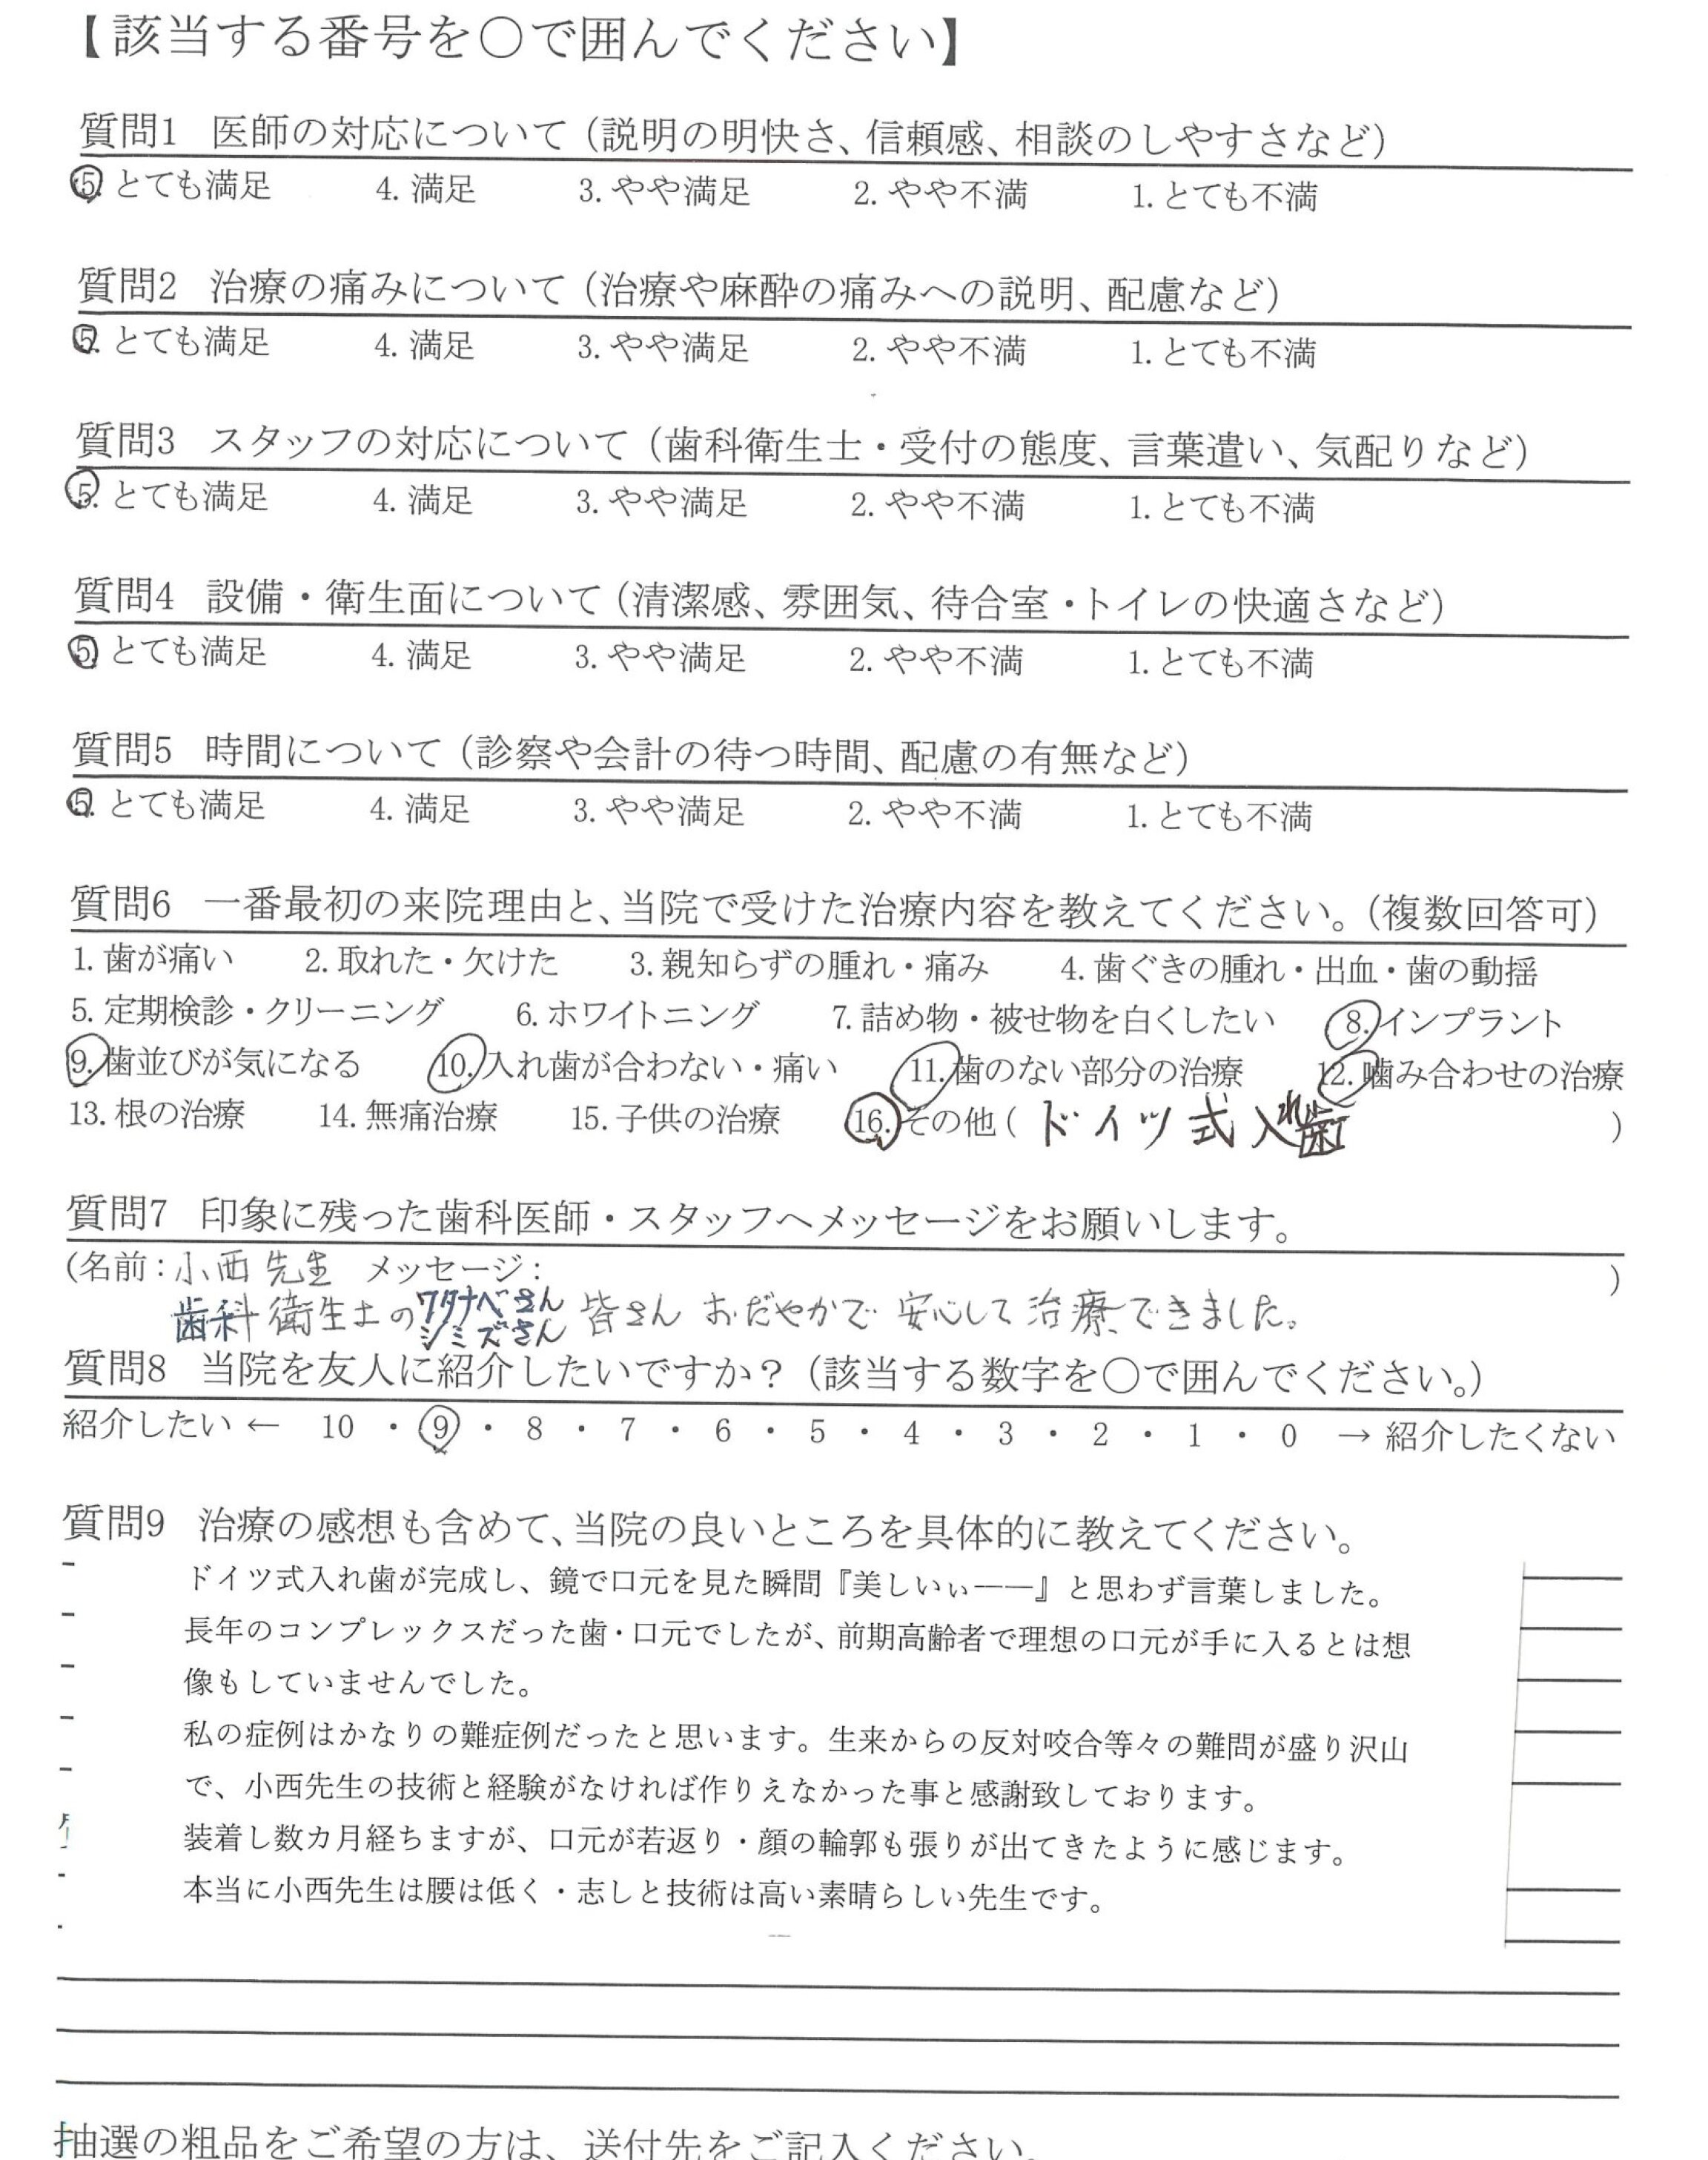 【該当する番号を〇で囲んでください】
質問1 医師の対応について（説明の明快さ、信頼感、相談のしやすさなど）
5. とても満足 4. 満足 3. やや満足 2. やや不満 1. とても不満
質問2 治療の痛みについて（治療や麻酔の痛みへの説明、配慮など）
5. とても満足 4. 満足 3. やや満足 2. やや不満 1. とても不満
質問3 スタッフの対応について（歯科衛生士・受付の態度、言葉遣い、気配りなど）
5. とても満足 4. 満足 3. やや満足 2. やや不満 1. とても不満
質問4 設備・衛生面について（清潔感、雰囲気、待合室・トイレの快適さなど）
5. とても満足 4. 満足 3. やや満足 2. やや不満 1. とても不満
質問5 時間について（診察や会計の待つ時間、配慮の有無など）
5. とても満足 4. 満足 3. やや満足 2. やや不満 1. とても不満
質問6 一番最初の来院理由と、当院で受けた治療内容を教えてください。（複数回答可）
1. 歯が痛い 2. 取れた・欠けた 3. 親知らずの腫れ・痛み 4. 歯ぐきの腫れ・出血・歯の動揺
5. 定期検診・クリーニング 6. ホワイトニング 7. 詰め物・被せ物を白くしたい 8. インプラント
9. 歯並びが気になる 10. 入れ歯が合わない・痛い 11. 歯のない部分の治療 12. 噛み合わせの治療
13. 根の治療 14. 無痛治療 15. 子供の治療 16. その他（ドイツ式入れ歯）
質問7 印象に残った歯科医師・スタッフへメッセージをお願いします。
（名前：小西先生 メッセージ： ）
歯科衛生士のワタナベさん シミズさん 皆さん おだやかで 安心して治療できました。
質問8 当院を友人に紹介したいですか？（該当する数字を〇で囲んでください。）
紹介したい ← 10 ・ 9 ・ 8 ・ 7 ・ 6 ・ 5 ・ 4 ・ 3 ・ 2 ・ 1 ・ 0 → 紹介したくない
質問9 治療の感想も含めて、当院の良いところを具体的に教えてください。
ドイツ式入れ歯が完成し、鏡で口元を見た瞬間『美しいぃ――』と思わず言葉しました。
長年のコンプレックスだった歯・口元でしたが、前期高齢者で理想の口元が手に入るとは想
像もしていませんでした。
私の症例はかなりの難症例だったと思います。生来からの反対咬合等々の難問が盛り沢山
で、小西先生の技術と経験がなければ作りえなかった事と感謝致しております。
装着し数カ月経ちますが、口元が若返り・顔の輪郭も張りが出てきたように感じます。
本当に小西先生は腰は低く・志しと技術は高い素晴らしい先生です。
抽選の粗品をご希望の方は、送付先をご記入ください。